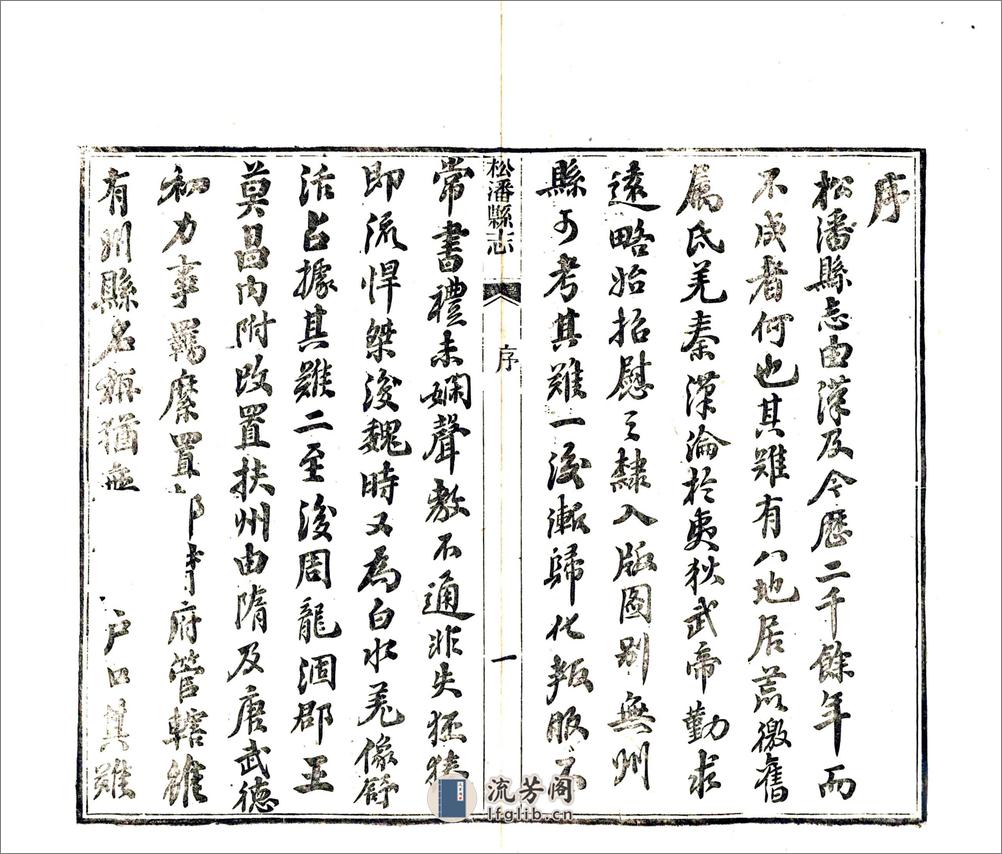 序
松潘縣志由漢及今歷二千餘年而
不成者何也其難有八地居荒徼舊
屬氐羌秦漢淪於夷狄武帝勤求
遠略始招慰之隸入版圖別無州
縣可考其難一後漸歸化叛服不
松潘縣志 序 一
常書禮未嫻聲敷不通非失狉獉
即流悍桀後魏時又為白水羌像舒
活占據其難二至後周龍涸郡王
莫昌內附改置扶州由隋及唐武德
初力事羈縻置都督府管轄雖
有州縣名稱猶無戶口其難
流芳阁
lfglib.cn